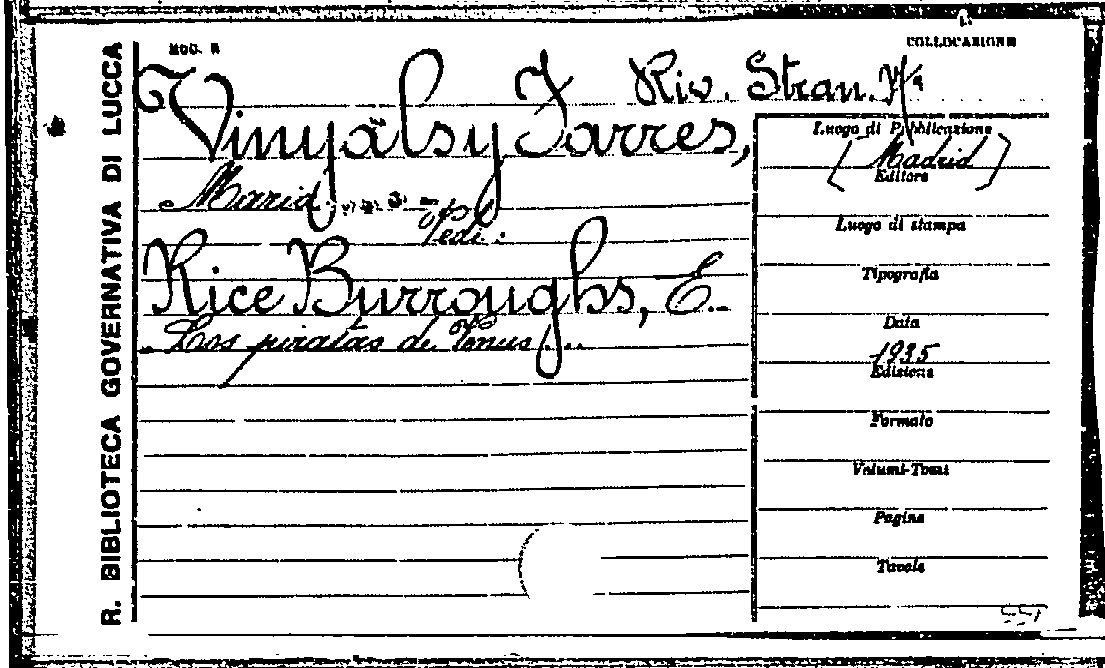 R. BIBLIOTECA GOVERNATIVA DI LUCCA
MOD. R
COLLOCAZIONE
Riv. Stran.
Vinyalsy Farres,
Maria
Vedi:
Rice Burroughs, E.
Los piratas de Venus...
Luogo di Pubblicazione
(Madrid)
Editore
Luogo di stampa
Tipografia
Data
1935
Edizione
Formato
Volumi-Tomi
Pagine
Tavole